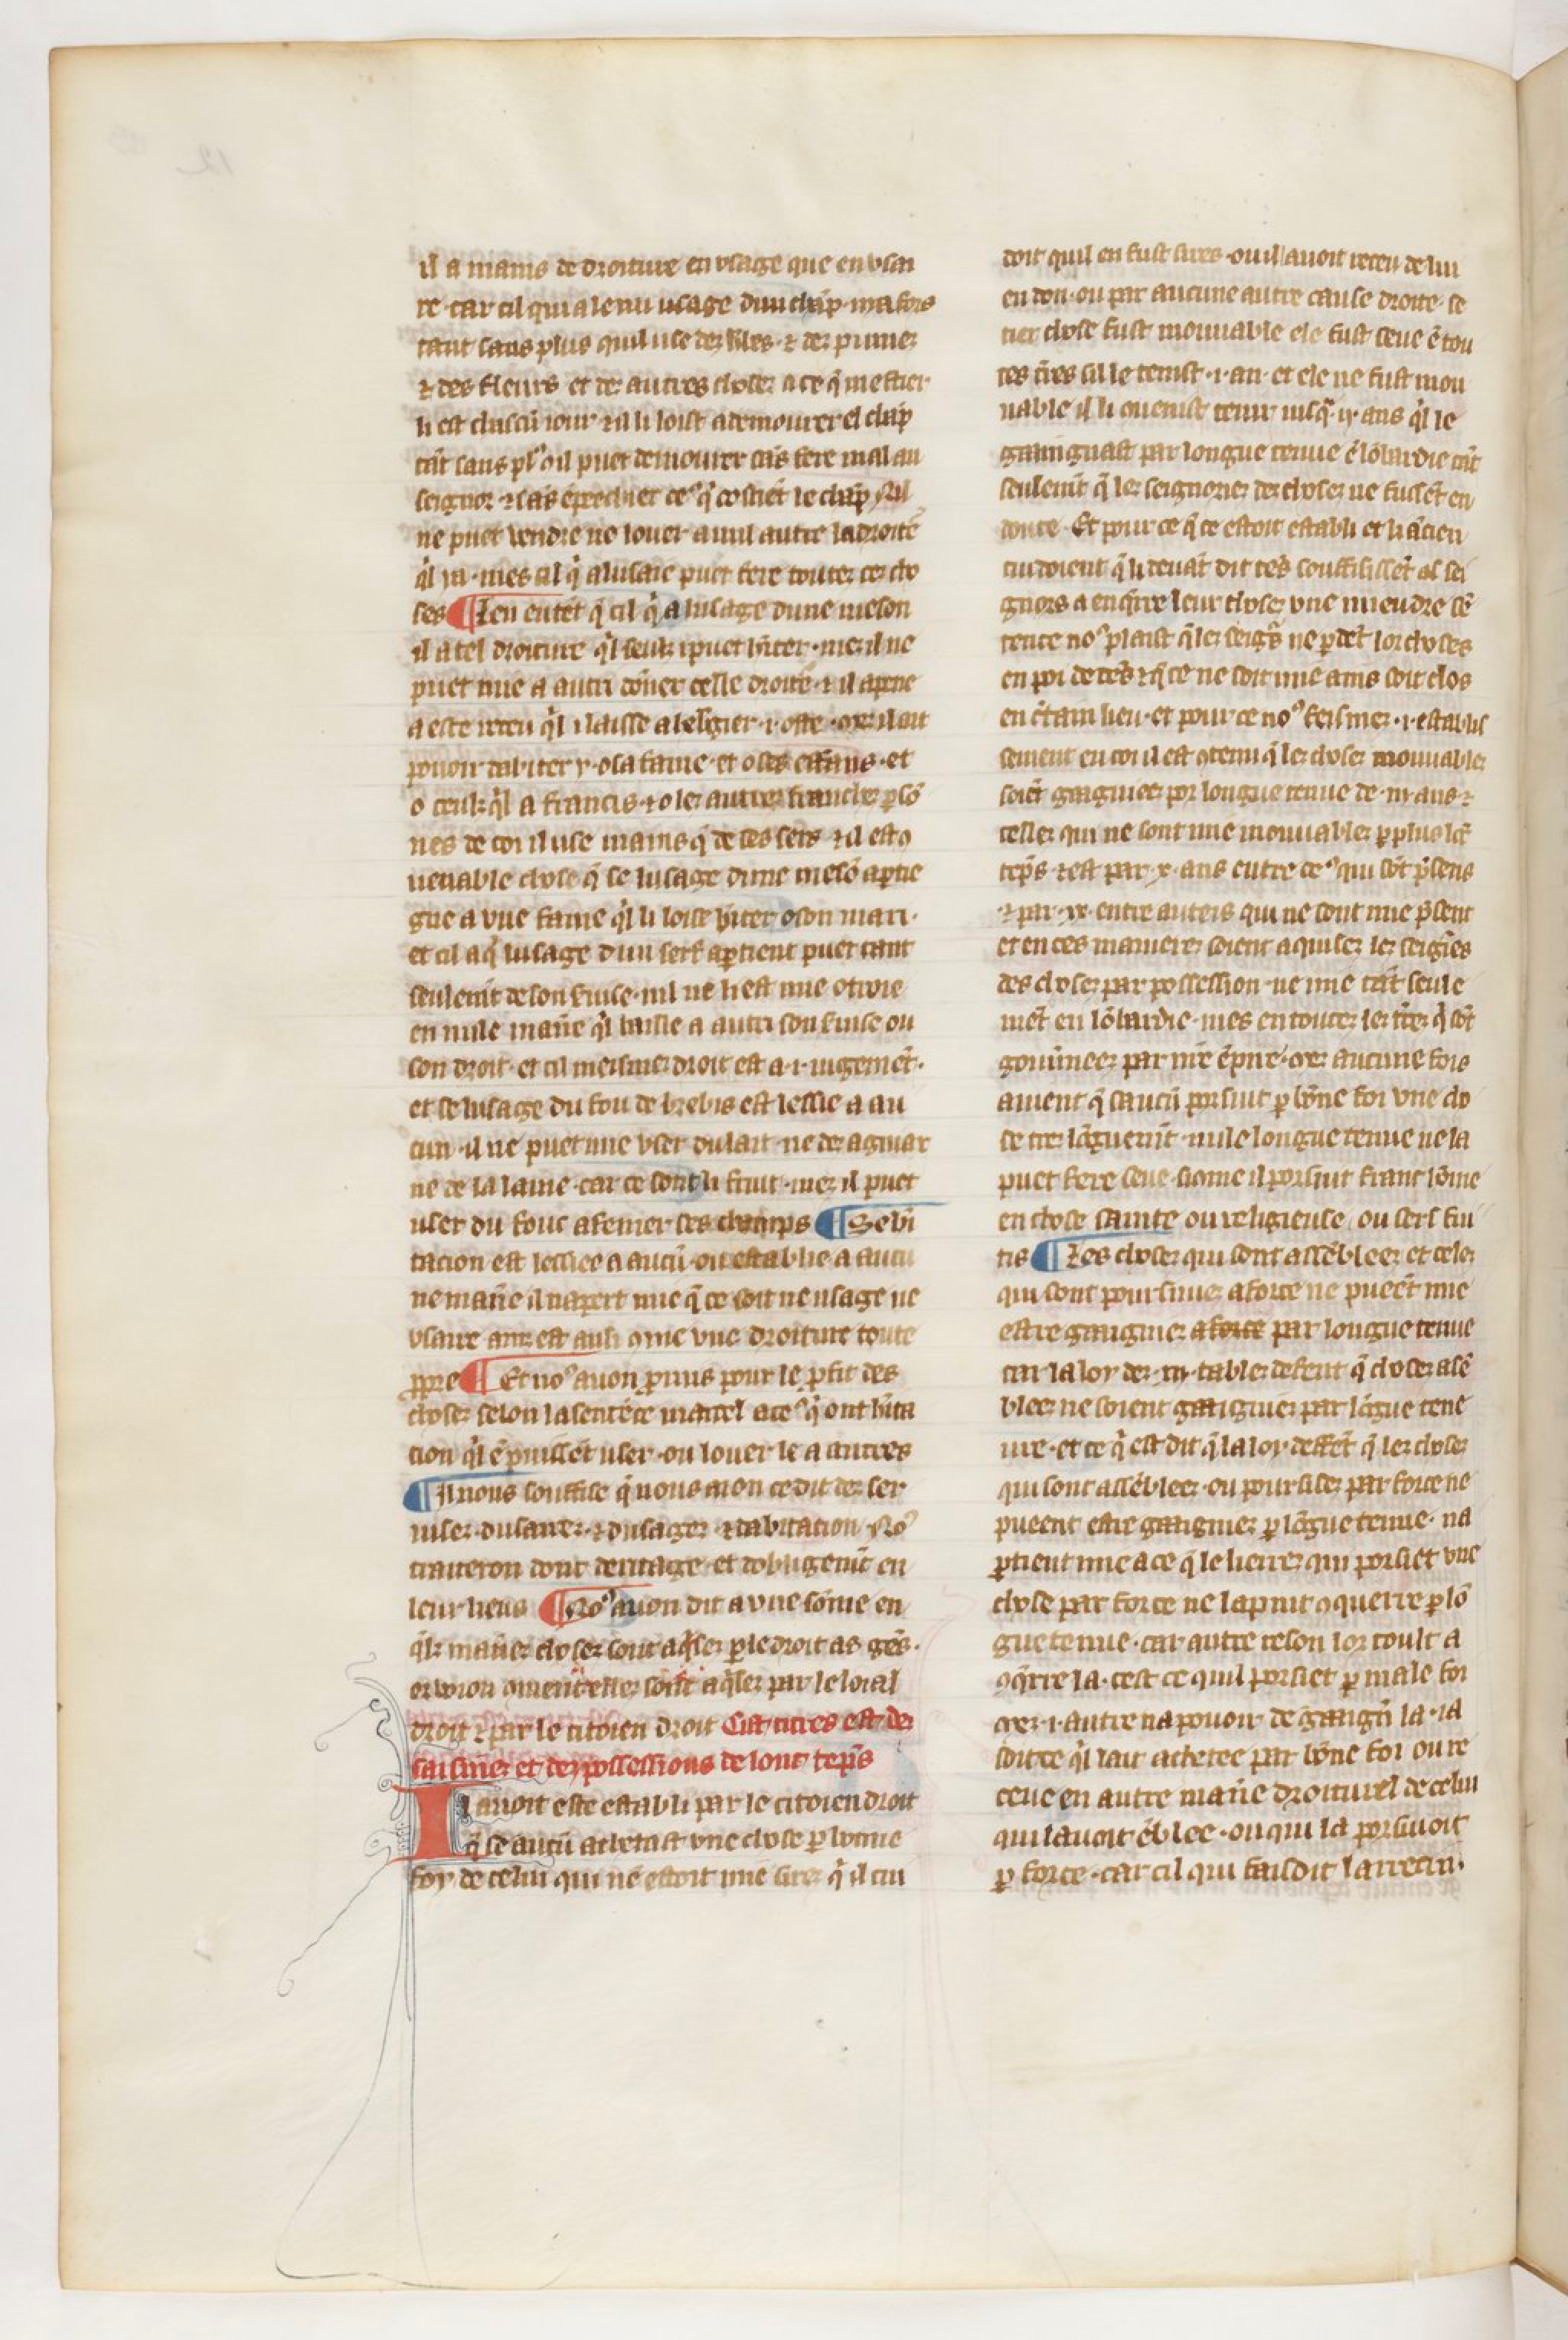 il a mains de droiture en usage que en usai
re · car cil qui a le nu usage dun chāp · nia fors
tant sans plus quil use des files · ⁊ des pumes
⁊ des fleurs et de autres choses a ce q̄ mestier
li est chascū iour ⁊ il li loist a demourer el chāp
tāt sans plꝰ oil puet demourer sās fere mal au
seignor ⁊ sās ēpeechier ceꝰ q̄ costiēt le chāp Nil
ne puet vendre ne louer a nul autre la droite
ql ia · mes cil q̄ a lusaie puet fere toutes ces cho
ses ¶ Len entēt q̄ cil q̄ a lusage dune meson
il a tel droiture ql seulz i puet hīter · mes il ne
puet mie a autri dōner celle droite · ⁊ il a peine
a este receu ql i laisse abeligier · i · oste · mes il ait
pouoir dabiter y · o sa fame · et o ses effans · et
o ceulz ql a francis · ⁊ o les autres franches psō
nes de coi il use mains q̄ de ses sers ⁊ il est ꝯ
uenable chose q̄ se lusage dune mesō aptie
gne a une fame ql li loise hīter o son mari ·
et cil a q̄ lusage dun serf apartient puet tant
seulemt de son seruise · nil ne li est mie otroie
en nule manie ql baille a autri son seruise ou
son droit · et cil meismes droit est a · i · iugemēt ·
et se lusage du fou de brebis est lessie a au
cun · il ne puet mie user du lait · ne des agniax
ne de la laine · car ce sont li fruit · mes il puet
user du fouc a femer ses champs ¶ Se hī
tacion est lessiee a aucū · ou establie a aucu
ne manie il napert mie q̄ ce soit ne usage ne
usaire ainz est ausi ꝯme une droiture toute
ppre ¶ Et noꝰ auon pmis pour le pfit des
choses selon la sentēce marcel a ceꝰ q̄ ont hīta
cion ql ē puissēt user · ou louer le a autres
¶ Il nous souffise q̄ nous aion ce dit des ser
uises · dusaires · ⁊ dusages · ⁊ dabitacion Noꝰ
traiteron dont deritage · et dobligemt en
leur lieus ¶ Noꝰ auon dit a une sōme en
qlz manies choses sont aqises p le droit as gēs ·
or voion ꝯment elles sont aqises par le loial
droit ⁊ par le citoien droit Cist titres est des
saisines et des possessions de lonc teps
Il auoit este establi par le citoien droit
q̄ se aucū achetast une chose p bonne
foy de celui qui ne estoit mie sires q̄ il cui
doit quil en fust sires · ou il lauoit receu de lui
en don · ou par aucune autre cause droite · se
cest chose fust mouuable ele fust seue ē tou
tes tres sil le tenist · i · an · et ele ne fust mou
uable il li couenist tenir iusq̄ · ij · ans ql le
gaaignast par longue tenue ē lōbardie tāt
seulemt q̄ les seignories des choses ne fussēt en
doute · Et pour ce q̄ ce estoit establi et li ācien
cuidoient q̄ li deuāt dit tēs souffisissēt as sei
gnors a enq̄rre leur choses une mieudre sē
tence noꝰ plaist q̄ les seigrs ne pdēt lor choses
en poi de tēs ⁊ q̄ ce ne soit mie ains soit clos
en ctain lieu · et pour ce noꝰ feismes · i · establis
sement en coi il est ꝯtenu q̄ les choses mouuables
soiēt gaigniees por longue tenue de · iij · ans · ⁊
celles qui ne sont mie mouuables p plus lōc
teps ⁊ est par · x · ans entre ceꝰ qui sōt psens
· ⁊ par · xx · entre auteis qui ne sont mie psent
et en ces manieres soient aquises les seigries
des choses par possession · ne mie tāt seule
mēt en lōbardie · mes en toutes les tres q̄ sōt
gouunees par nre ēpire · mes aucune fois
auient q̄ saucū porsuit p bōne foi une cho
se tres lōguemt · nule longue tenue ne la
puet fere seue · si ꝯme il porsuit franc home
en chose sainte ou religieuse · ou serf fui
tis ¶ Les choses qui sont assēblees et celes
qui sont poursiues a force ne pueēt mie
estre gaigniez a force par longue tenue
car la loy des · xij · tables defent q̄ choses asē
blees ne soient gaaignies par lōgue tene
ure · et ce q̄ est dit q̄ la loy deffēt q̄ les choses
qui sont assēblees · ou poursises par force ne
pueent estre gaaignies p lōgue tenue · na
ptient mie a ce q̄ le lierres qui porsiet une
chose par force ne la puit ꝯquerre p lō
gue tenue · car autre reson lor toult a
ꝯq̄rre la · cest ce quil porsiet p male foi
mes · i · autre na pouoir de gaign la · ia
soit ce ql lait achetee par bōne foi ou re
ceue en autre manie droiturel de celui
qui lauoit ēblee · ou qui la porsiuoit
p force · car cil qui faisdit larrecin ·